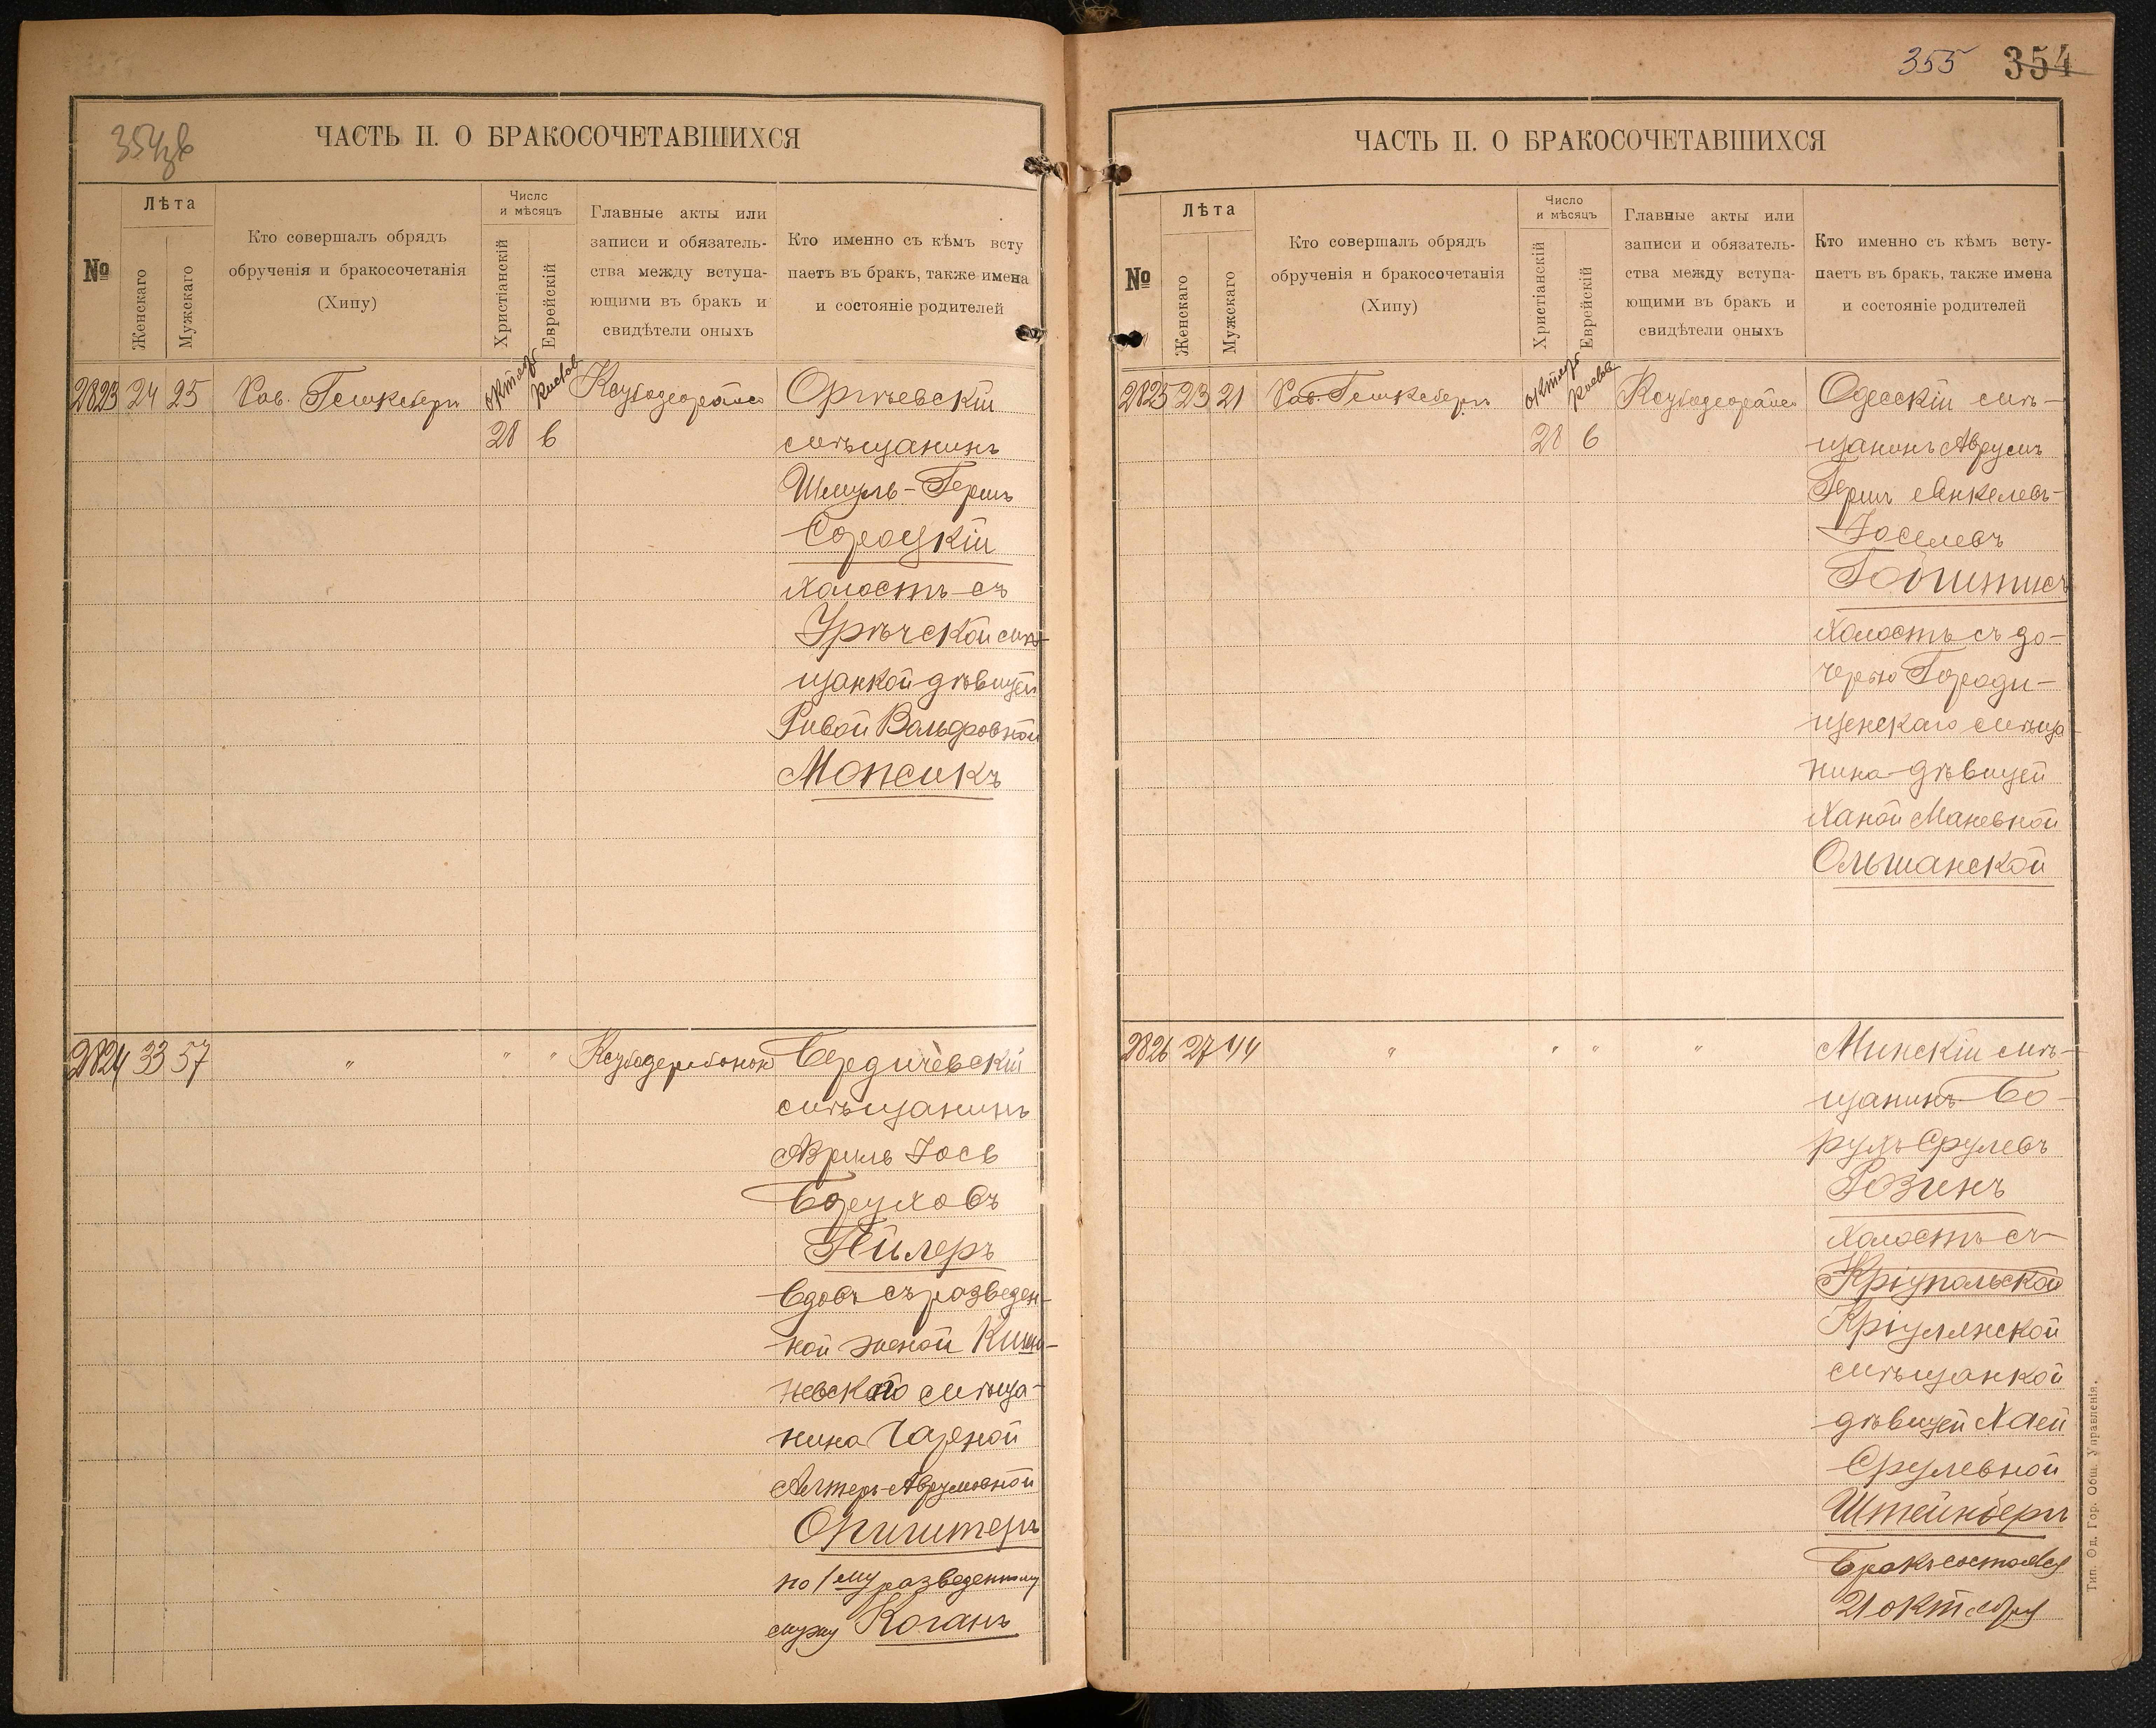 354зв
ЧАСТЬ II. О БРАКОСОЧЕТАВШИХСЯ
№
Лѣта
Женскаго
Мужскаго
Кто совершалъ обрядъ
обрученія и бракосочетанія
(Хипу)
Число
и мѣсяцъ
Христіанскій
Еврейскій
Главные акты или
записи и обязатель-
ства между вступа-
ющими въ бракъ и
свидѣтели оныхъ
Кто именно съ кѣмъ всту
паетъ въ бракъ, также имена
и состояніе родителей
2823 24 25 Рав. октяб 28 6 Оргѣевскій
мѣщанинъ
Шмуль-Герш
Сороцкій
холостъ съ
мѣ-
щанкой дѣвицей
Ривой Вольфовной
Мопсикъ
2824 33 57 " " " Бердичевскій
мѣщанинъ
Иось
Боруховъ
вдовъ съ разведен-
ной женой Киши-
невскаго мѣща-
нина Чарной
Алтеръ-Аврумовной
по 1му разведенному
мужу Коганъ
355 354
ЧАСТЬ II. О БРАКОСОЧЕТАВШИХСЯ
№
Лѣта
Женскаго
Мужскаго
Кто совершалъ обрядъ
обрученія и бракосочетанія
(Хипу)
Число
и мѣсяцъ
Христіанскій
Еврейскій
Главные акты или
записи и обязатель-
ства между вступа-
ющими въ бракъ и
свидѣтели оныхъ
Кто именно съ кѣмъ всту-
паетъ въ бракъ, также имена
и состояніе родителей
2825 23 21 Рав. октяб 28 6 Одесскій мѣ-
щанинъ Аврумъ
Герш Янкелевъ-
Іоселевъ
холостъ съ до-
черью Городи-
щенскаго мѣща
нина дѣвицей
Ханой Маневной
Ольшанской
2826 27 44 " " " " Минскій мѣ-
щанинъ Бо-
рухъ Срулевъ
Розинъ
холостъ съ
Кріулянской
мѣщанкой
дѣвицей Хаей
Срулевной
Штейнбергъ
Бракъ состоялся
21 октября
Тип. Од. Гор. Общ. Управленія.